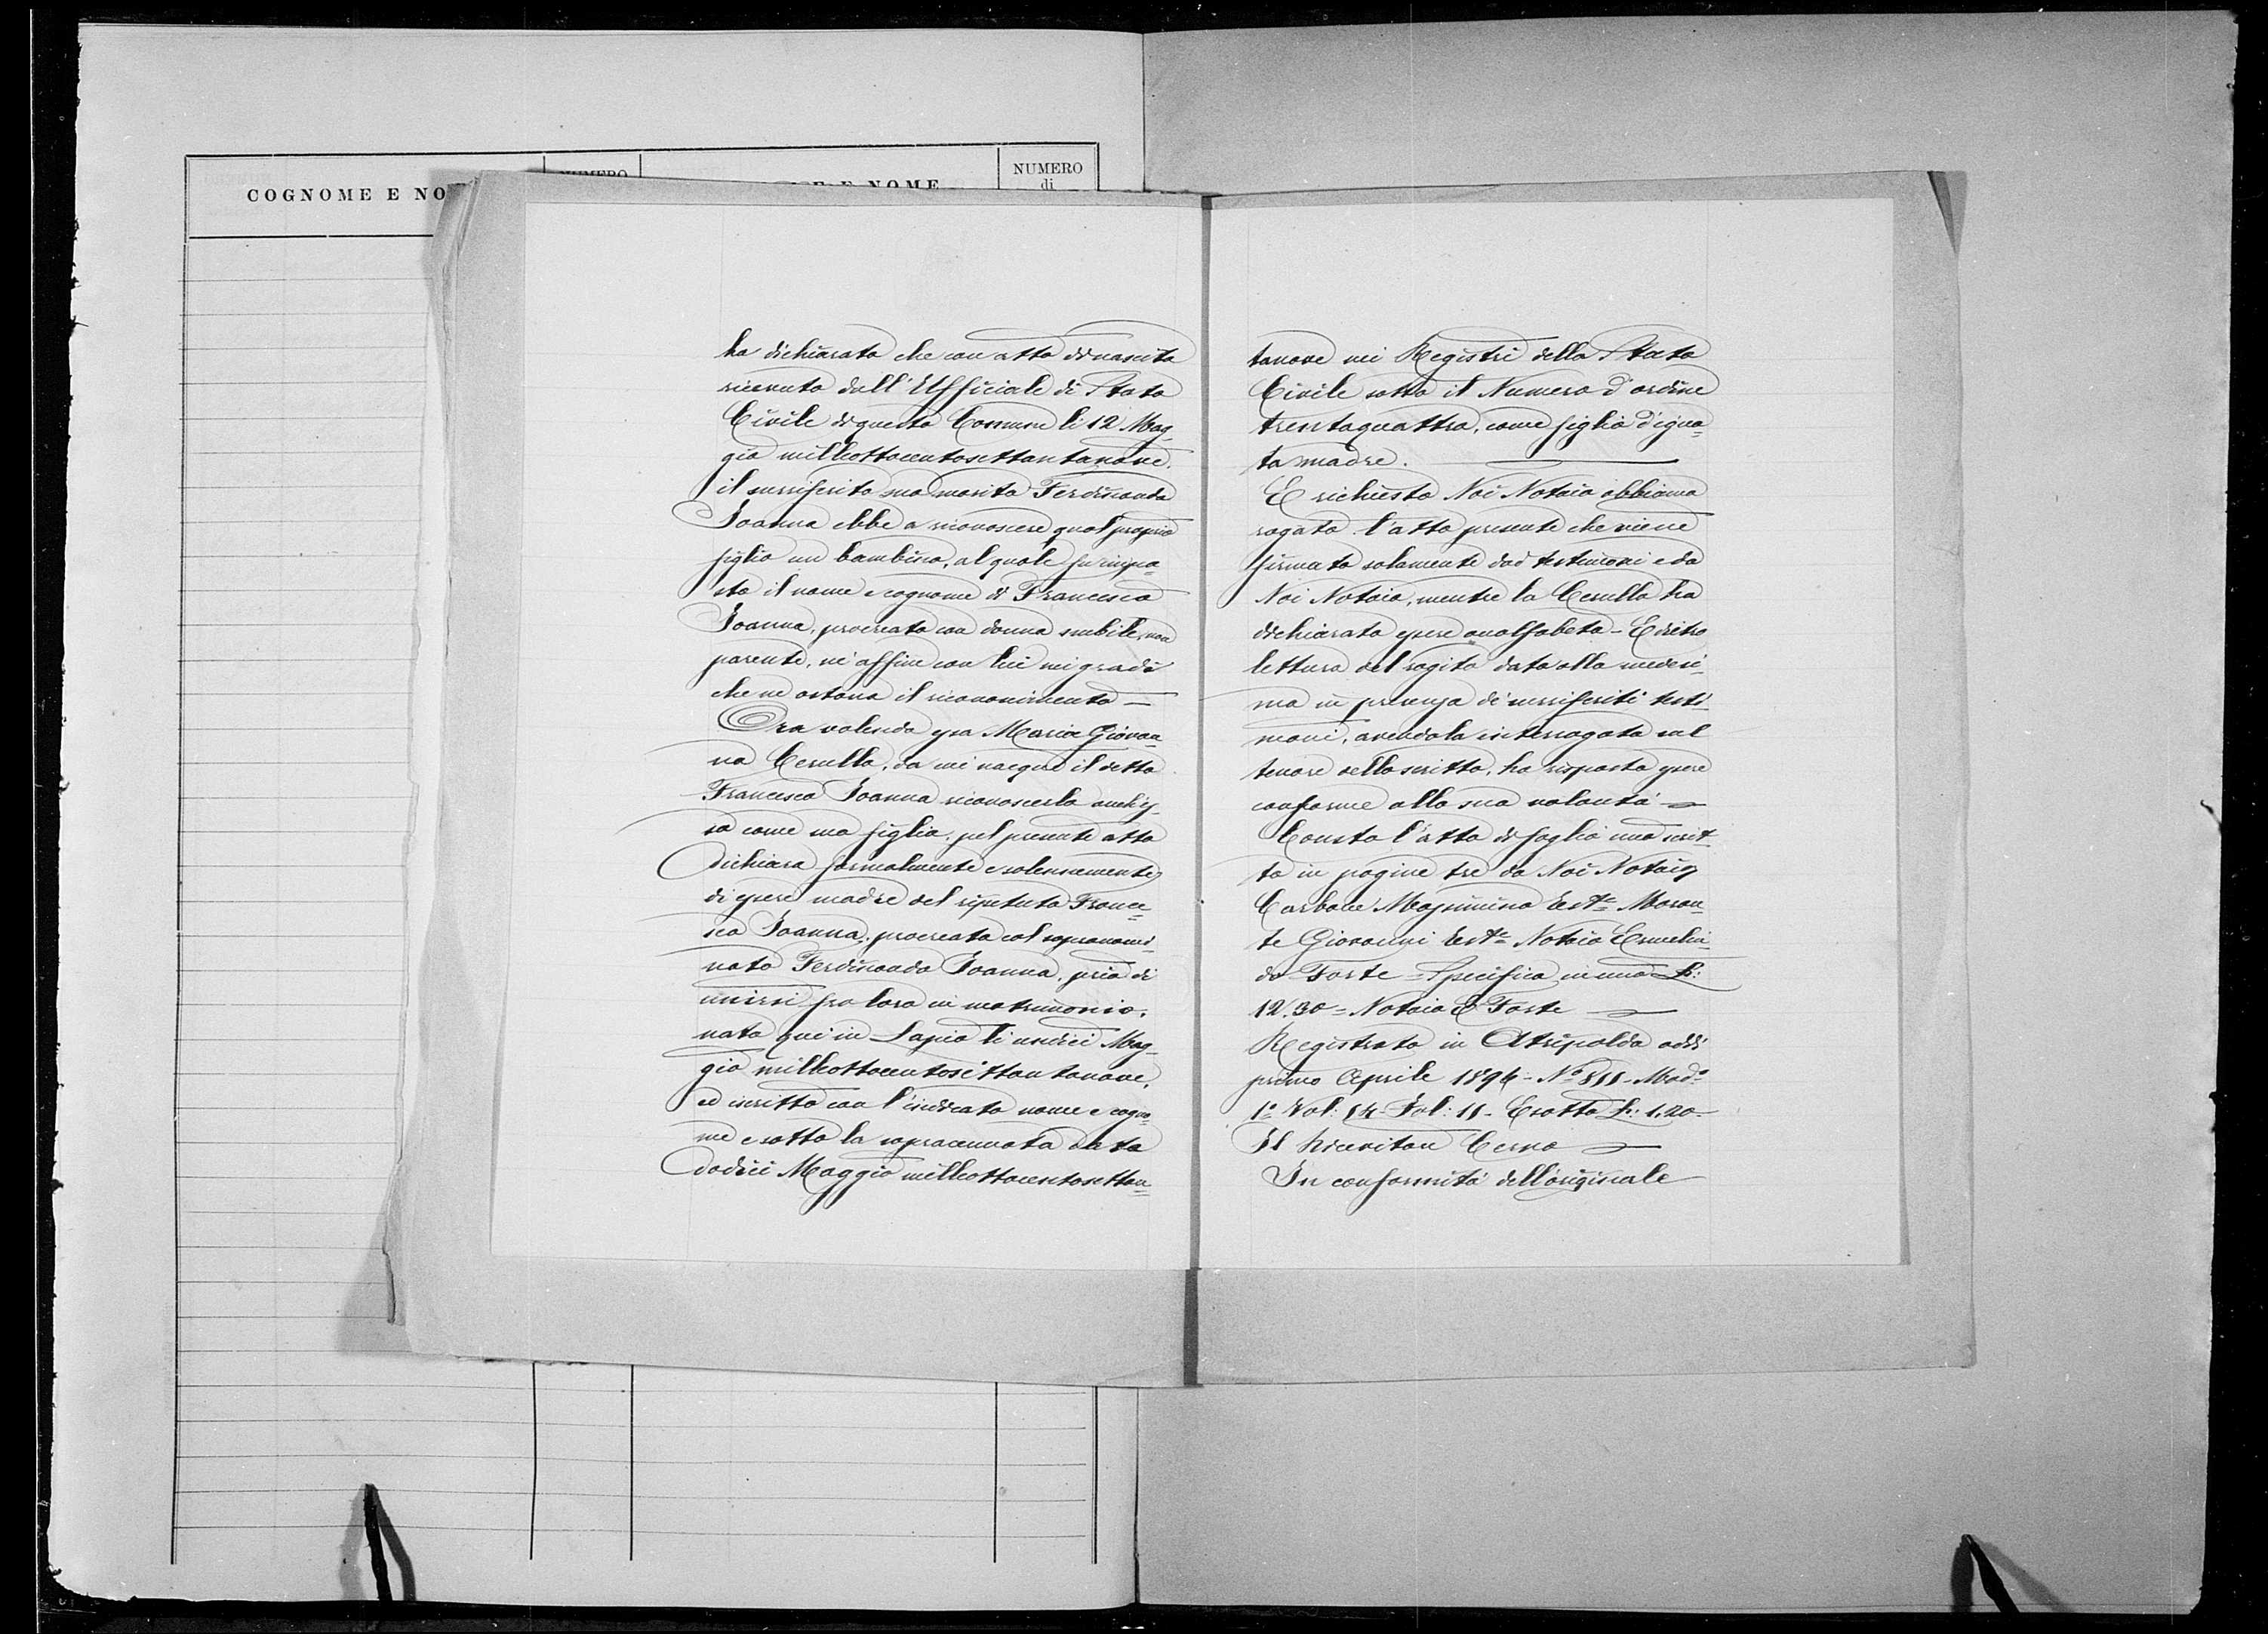 COGNOME E NO
NUMERO
E NOME
NUMERO
di
ha dichiarato che con atto di nascita
ricevuto dall'Ufficiale di Stato
Civile di questo Comune li 12 Mag-
gio milleottocentosettantanove.
il surriferito suo marito Ferdinando
Ioanna ebbe a riconoscere qual proprio
figlio un bambino, al quale fu impo=
sto il nome e cognome di Francesco
Ioanna, procreato con donna nubile, non
parente, nè affine con lui nei gradi
che ne ostano il riconoscimento —
Ora volendo essa Maria Giovan=
na Cerullo, da cui nacque il detto
Francesco Ioanna riconoscerlo anch'es-
sa come suo figlio, pel presente atto
dichiara formalmente e solennemente
di essere madre del ripetuto France=
sco Ioanna, procreato col sopranomi-
nato Ferdinando Ioanna, pria di
unirsi fra loro in matrimonio,
nato qui in Lapio li undici Mag-
gio milleottocentosettantanove,
ed iscritto con l'indicato nome e cogno=
me e sotto la sopracennata data
dodici Maggio milleottocentosettan=
tanove nei Registri dello Stato
Civile sotto il Numero d'ordine
trentaquattro, come figlio d'igno=
ta madre. —
E richiesto Noi Notaio abbiamo
rogato l'atto presente che viene
firmato solamente dai testimoni e da
Noi Notaio, mentre la Cerullo ha
dichiarato essere analfabeta - E dietro
lettura del rogito data alla medesi-
ma in presenza di surriferiti testi-
moni, avendola interrogata sul
tenore dello scritto, ha risposto essere
conforme alla sua volontà —
Consta l'atto di foglio uno scrit-
to in pagine tre da Noi Notaio
Carbone Massimino test.e = Moran=
te Giovanni test.e = Notaio Ermelin-
do Forte = Specifica in uno L:
12.30 = Notaio E Forte —
Registrato in Atripalda addì
primo Aprile 1894 - N.o 811 - Mod.o
1.o Vol: 14 Fol: 11 - Esatto L: 1.20 -
Il Ricevitore Cerno —
In conformità dell'originale